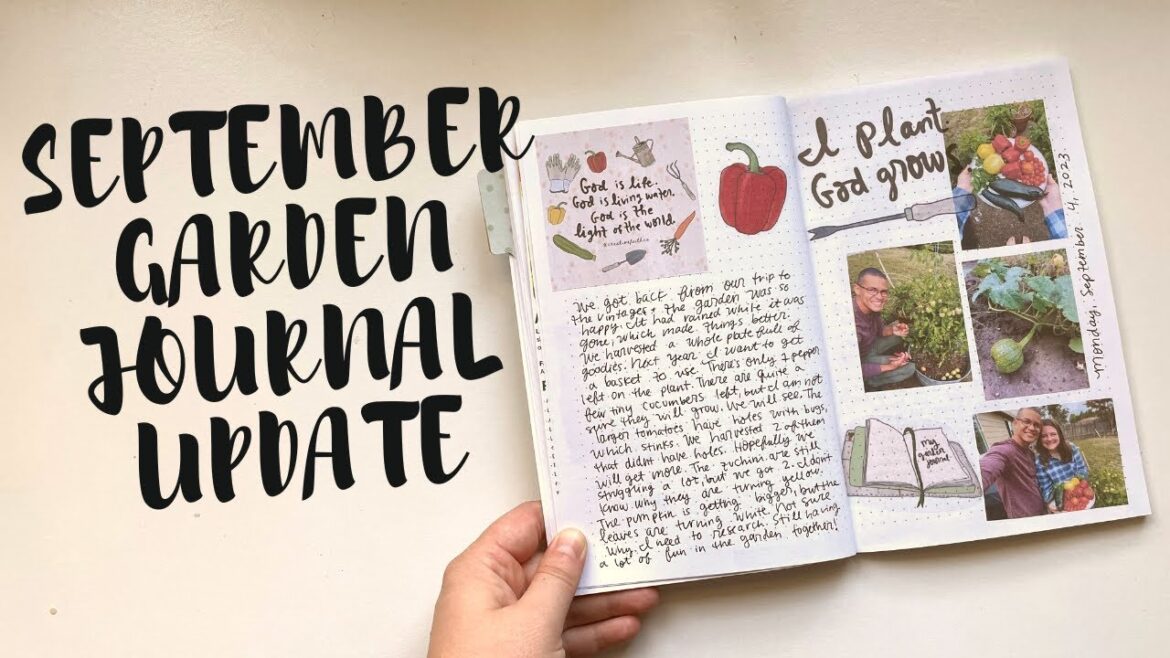 SEPTEMBER
GARDEN
JOURNAL
UPDATE
God is life.
God is living water.
God is the
light of the world.
We got back from our trip to
the vintages, the garden was so
happy. It had rained while it was
gone, which made things better.
We harvested a whole plate full of
goodies. Next year I want to get
a basket to use. There's only 1 pepper
left on the plant. There are quite a
few tiny cucumbers left, but I am not
sure they will grow. We will see. The
larger tomatoes have holes with bugs,
which stinks. We harvested 2 of them
that didnt have holes. Hopefully we
will get more. The zuchini are still
struggling a lot, but we got 2. I dont
know why they are turning yellow.
The pumpkin is getting bigger, but the
leaves are turning white. Not sure
why. I need to research. Still having
a lot of fun in the garden together!
I Plant
God grows
Monday, September 4, 2023.
my
garden
journal